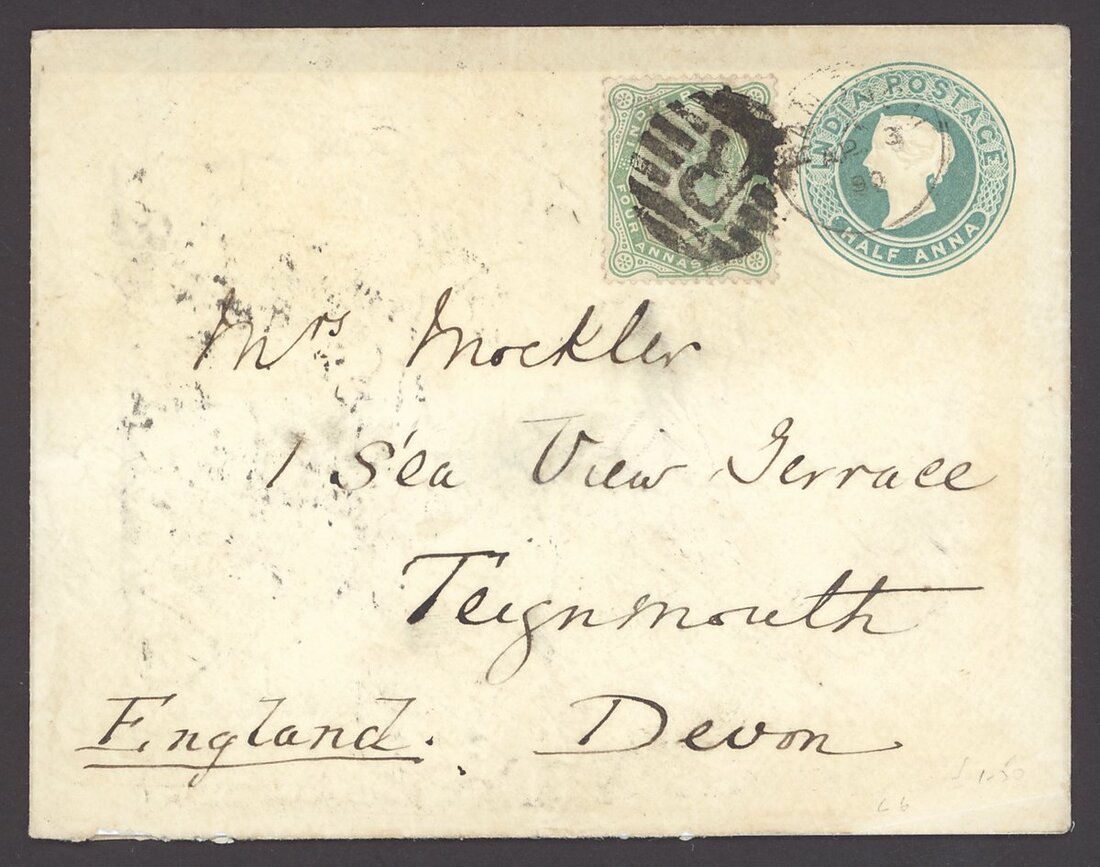 INDIA POSTAGE
HALF ANNA
FOUR ANNAS
AP 3
90
Mrs Mockler
1 Sea View Terrace
Teignmouth
England. Devon
1-50